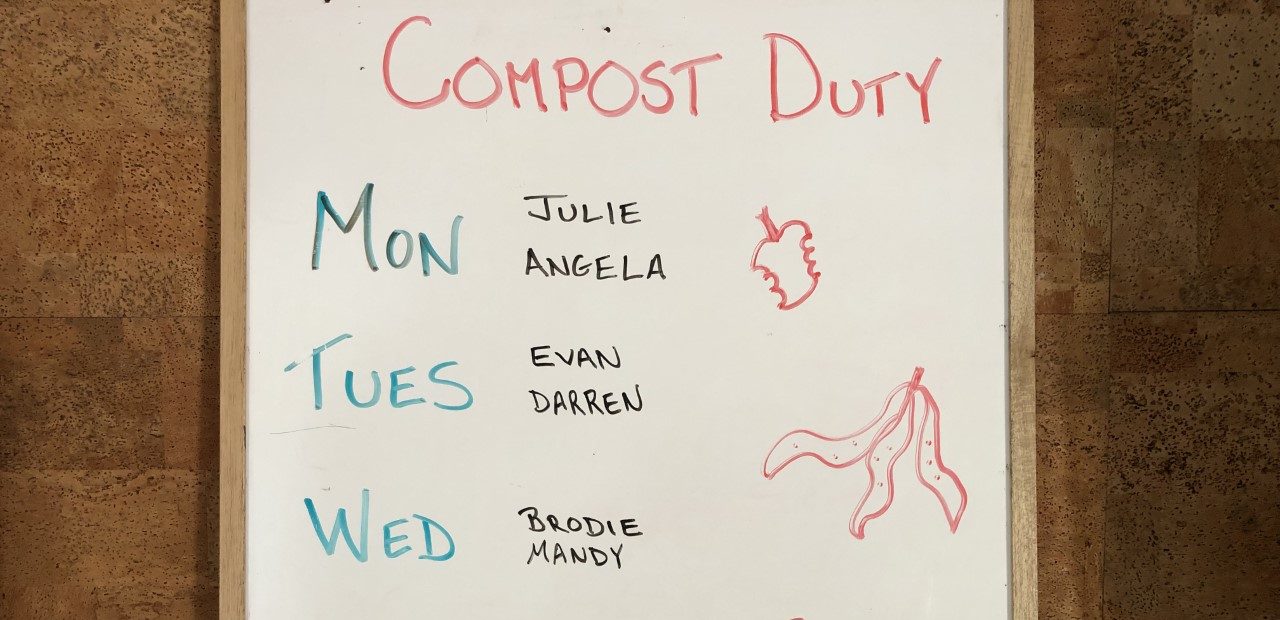 COMPOST DUTY
MON
JULIE
ANGELA
TUES
EVAN
DARREN
WED
BRODIE
MANDY